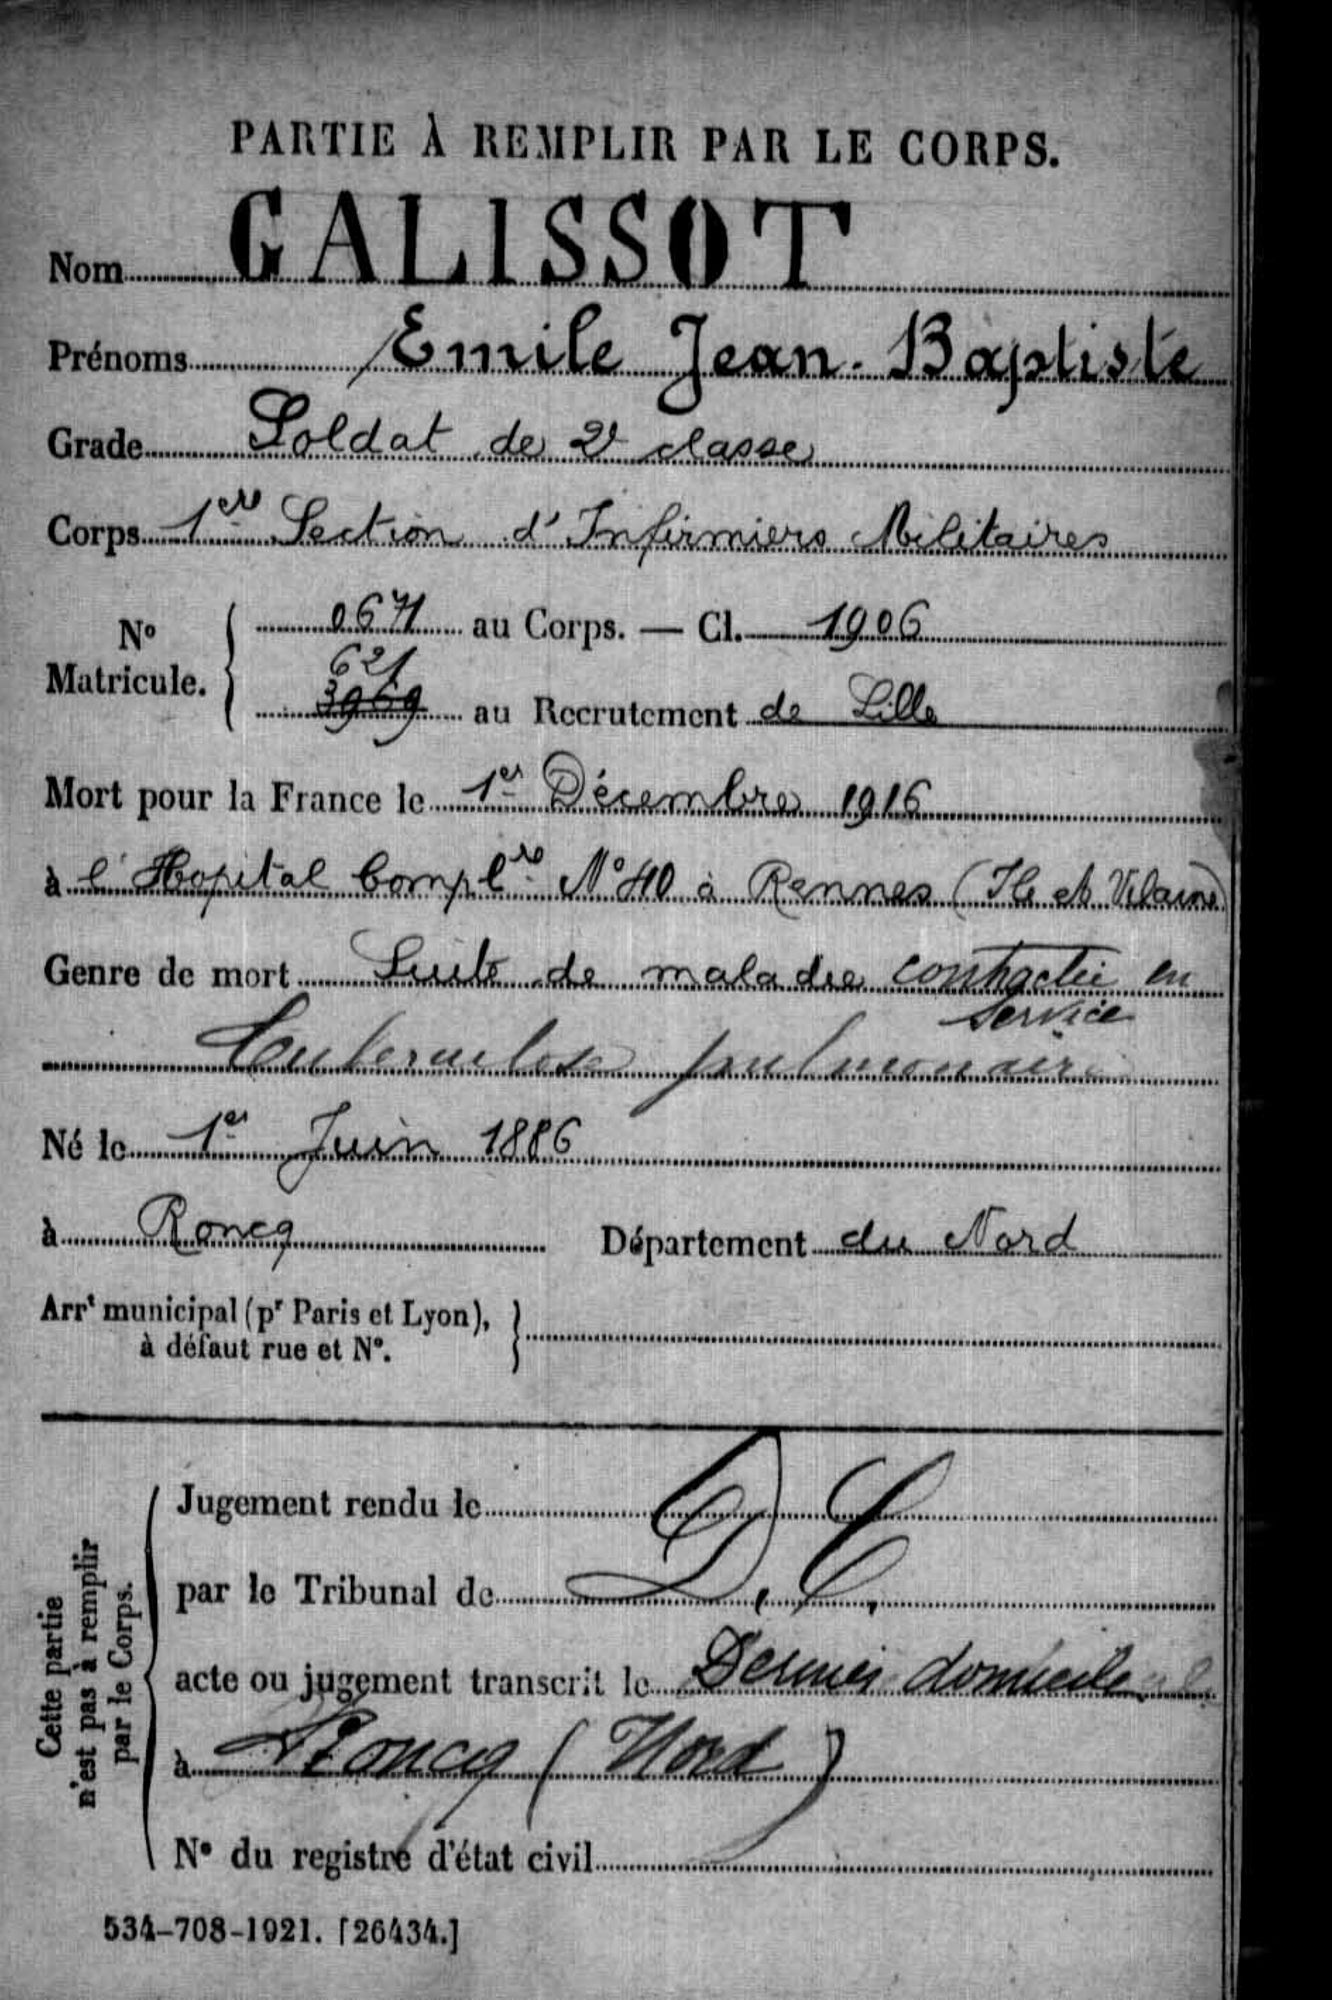 PARTIE À REMPLIR PAR LE CORPS.
Nom GALISSOT
Prénoms Emile Jean-Baptiste
Grade Soldat de 2e classe
Corps 1ère Section d'Infirmiers Militaires
No Matricule. { 0671 au Corps. — Cl. 1906
621
3969 au Recrutement de Lille
Mort pour la France le 1er Décembre 1916
à l'Hopital Complre No 40 à Rennes (Ile et Vilaine)
Genre de mort Suite de maladie contractée en
service
Tuberculose pulmonaire
Né le 1er Juin 1886
à Roncq Département du Nord
Arrt municipal (pr Paris et Lyon),
à défaut rue et No. }
Cette partie
n'est pas à remplir
par le Corps.
Jugement rendu le
D. C.
par le Tribunal de
acte ou jugement transcrit le Dernier domicile
à Roncq (Nord)
No du registre d'état civil
534-708-1921. [26434.]